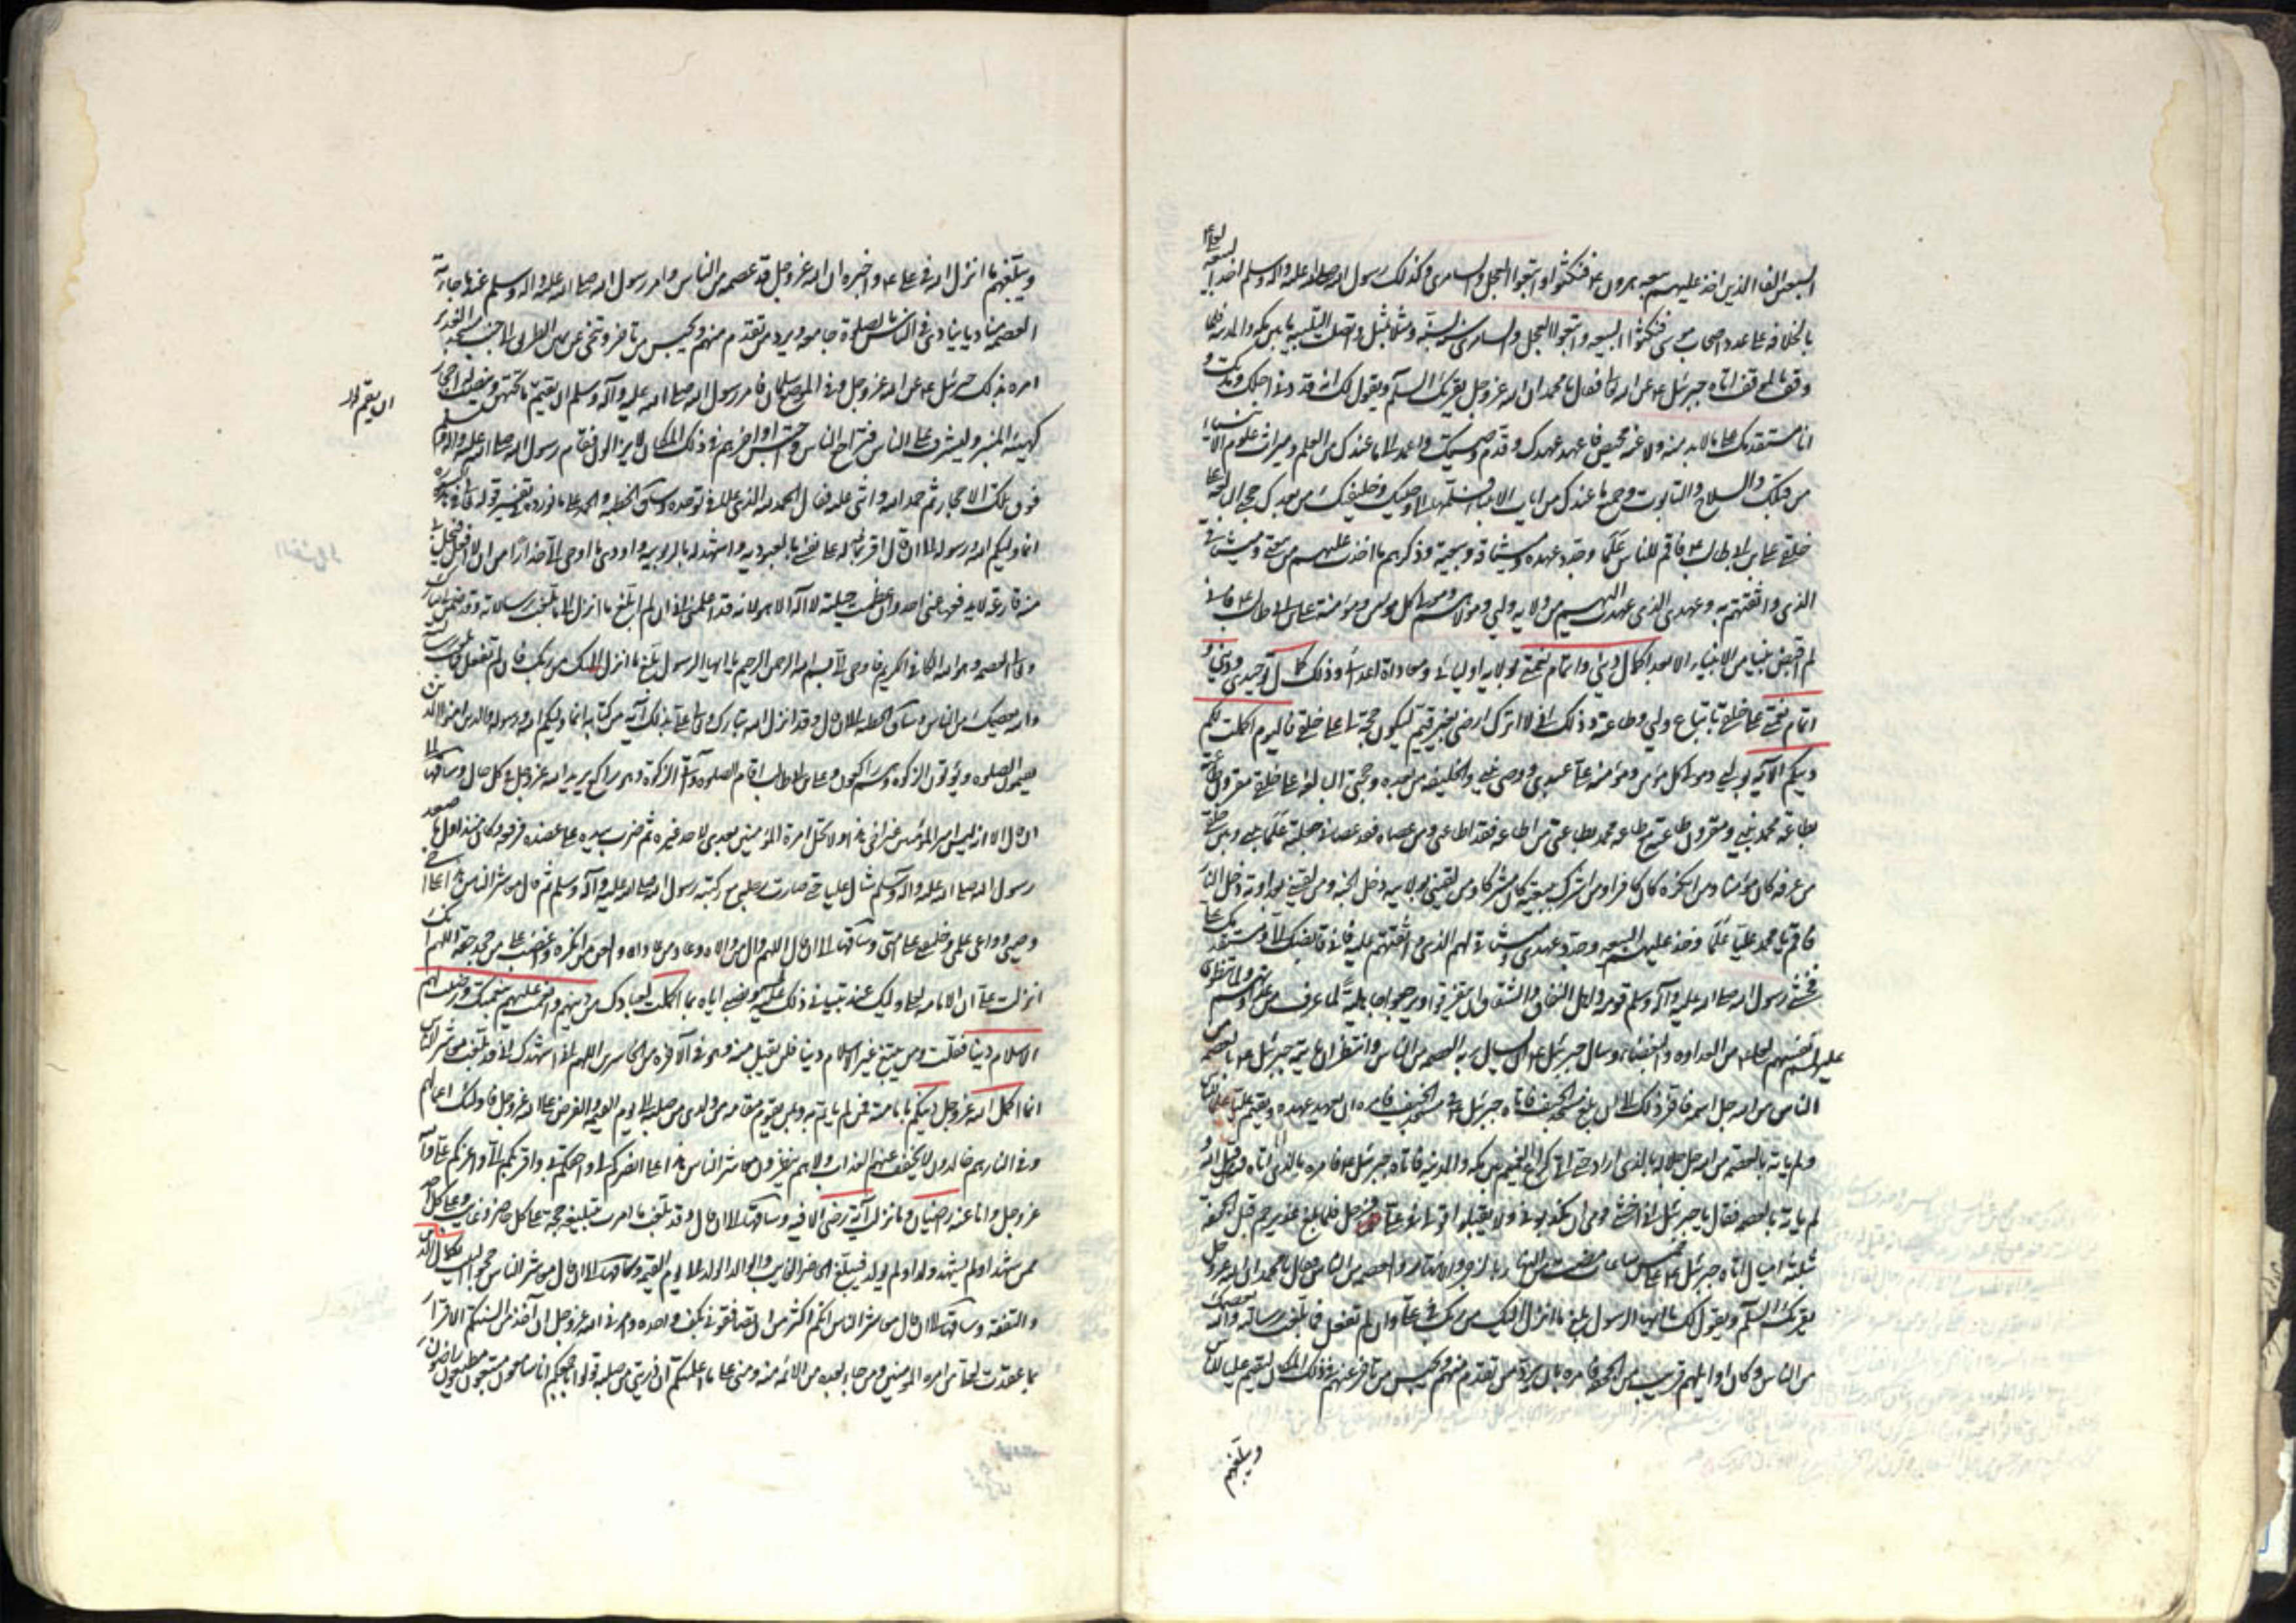 السبعين الفا الذين اخذ عليهم بيعة هرون ع فنكثوا واتبعوا العجل والسامري وكذلك رسول الله صلى الله عليه واله وسلم اخذ البيعة لعلي ع
بالخلافة على عدد اصحاب موسى فنكثوا البيعة واتبعوا العجل والسامري سنة بسنة ومثلا بمثل واتصلت التلبية ما بين مكة والمدينة فلما
وقف بالموقف اتاه جبرئيل ع عن الله تعالى فقال يا محمد ان الله عز وجل يقرئك السلام ويقول لك انه قد دنى اجلك ومدتك و
انا مستقدمك على ما لا بد منه ولا عنه محيص فاعهد عهدك وقدم وصيتك واعمد الى ما عندك من العلم وميراث علوم الانبياء
من قبلك والسلاح والتابوت وجميع ما عندك من ايات الانبياء فسلمها الى وصيك وخليفتك من بعدك حجتي البالغة على
خلقي علي بن ابي طالب ع فاقمه للناس علما وجدد عهده وميثاقه وبيعته وذكرهم ما اخذت عليهم من بيعتي وميثاقي
الذي واثقتهم به وعهدي الذي عهدت اليهم من ولاية وليي ومولاهم ومولى كل مؤمن ومؤمنة علي بن ابي طالب ع فاني
لم اقبض نبيا من الانبياء الا بعد اكمال ديني واتمام نعمتي بولاية اوليائي ومعاداة اعدائي وذلك كمال توحيدي وديني و
اتمام نعمتي على خلقي باتباع وليي وطاعته وذلك اني لا اترك ارضي بغير قيم ليكون حجة لي على خلقي فاليوم اكملت لكم
دينكم الآية بوليي ومولى كل مؤمن ومؤمنة علي عبدي ووصي نبيي والخليفة من بعده وحجتي البالغة على خلقي مقرون طاعته
بطاعة محمد نبيي ومقرون طاعته مع طاعة محمد بطاعتي من اطاعه فقد اطاعني ومن عصاه فقد عصاني جعلته علما بيني وبين خلقي
من عرفه كان مؤمنا ومن انكره كان كافرا ومن اشرك ببيعته كان مشركا ومن لقيني بولايته دخل الجنة ومن لقيني بعداوته دخل النار
فاقم يا محمد عليا علما وخذ عليهم البيعة وجدد عهدي وميثاقي لهم الذي واثقتهم عليه فاني قابضك الي ومستقدمك علي
فخشي رسول الله صلى الله عليه وآله وسلم قومه واهل النفاق والشقاق ان يتفرقوا ويرجعوا جاهلية لما عرف من عداوتهم ولما ينطوي
عليه انفسهم لعلي ع من العداوة والبغضاء وسال جبرئيل ع ان يسال ربه العصمة من الناس وانتظر ان ياتيه جبرئيل ع بالعصمة من
الناس من الله جل اسمه فاخر ذلك الى ان بلغ مسجد الخيف فاتاه جبرئيل ع في مسجد الخيف فامره ان يعهد عهده ويقيم عليا علما للناس
ولم ياته بالعصمة من الله جل جلاله بالذي اراد حتى اتى كراع الغميم بين مكة والمدينة فاتاه جبرئيل ع فامره بالذي اتاه من قبل الله و
لم ياته بالعصمة فقال يا جبرئيل اني اخشى قومي ان يكذبوني ولا يقبلوا قولي في علي فرحل فلما بلغ غدير خم قبل الجحفة
بثلثة اميال اتاه جبرئيل ع على خمس ساعات مضت من النهار بالزجر والانتهار والعصمة من الناس فقال يا محمد ان الله عز وجل
يقرئك السلام ويقول لك يا ايها الرسول بلغ ما انزل اليك من ربك في علي وان لم تفعل فما بلغت رسالته والله يعصمك
من الناس وكان اوايلهم قريب من الجحفة فامره بان يرد من تقدم منهم ويحبس من تاخر عنهم في ذلك المكان ليقيم عليا للناس
ويبلغهم
ويبلغهم ما انزل الله في علي ع واخبره ان الله عز وجل قد عصمه من الناس فامر رسول الله صلى الله عليه واله وسلم عندما جاءته
العصمة مناديا ينادي في الناس بالصلوة جامعة ويرد من تقدم منهم ويحبس من تاخر وتنحى عن يمين الطريق الى جنب مسجد الغدير
امره بذلك جبرئيل ع عن الله عز وجل وفي الموضع سلمات فامر رسول الله صلى الله عليه وآله وسلم ان يقم ما تحتهن وينصب له احجار
ان يقم
كهيئة المنبر ليشرف على الناس فتراجع الناس واحتبس اواخرهم في ذلك المكان لا يزالون فقام رسول الله صلى الله عليه واله وسلم
فوق تلك الاحجار ثم حمد الله واثنى عليه فقال الحمد لله الذي علا في توحده وساق الخطبة
انما وليكم الله ورسوله الى ان قال اقر له على نفسي بالعبودية واشهد له بالربوبية واودي ما اوحى الي حذرا من ان لا افعل فتحل بي
منه قارعة لا يدفعها عني احد وان عظمت حيلته لا اله الا هو لانه قد اعلمني اني ان لم ابلغ ما انزل الي فما بلغت رسالته وقد ضمن لي تبارك
وتعالى العصمة وهو الله الكافي الكريم فاوحى الي بسم الله الرحمن الرحيم يا ايها الرسول بلغ ما انزل اليك من ربك فان لم تفعل فما بلغت رسالته
والله يعصمك من الناس وساق الخطبة الى ان قال وقد انزل الله تبارك وتعالى علي بذلك آية من كتابه انما وليكم الله ورسوله والذين امنوا الذين
يقيمون الصلوة ويؤتون الزكوة وهم راكعون وعلي بن ابي طالب اقام الصلوة وآتى الزكوة وهو راكع يريد الله عز وجل في كل حال وساقها الى
ان قال الا انه ليس امير المؤمنين غير اخي هذا ولا تحل امرة المؤمنين بعدي لاحد غيره ثم ضرب بيده على عضده فرفعه وكان منذ اول ما صعد
رسول الله صلى الله عليه واله وسلم شال عليا حتى صارت رجله مع ركبة رسول الله صلى الله عليه وآله وسلم ثم قال معاشر الناس هذا علي اخي
وصيي وواعي علمي وخليفتي على امتي وساقها الى ان قال اللهم وال من والاه وعاد من عاداه والعن من انكره واغضب على من جحد حقه اللهم انك
انزلت علي ان الامامة لعلي وليك عند تبياني ذلك عليهم ونصبي اياه بما اكملت لعبادك من دينهم واتممت عليهم نعمتك ورضيت لهم
الاسلام دينا فقلت ومن يبتغ غير الاسلام دينا فلن يقبل منه وهو في الاخرة من الخاسرين اللهم اني اشهدك اني قد بلغت معاشر الناس
انما اكمل الله عز وجل دينكم بامامته فمن لم ياتم به وبمن يقوم مقامه من ولدي من صلبه الى يوم القيمة والعرض على الله عز وجل فاولئك حبطت اعمالهم
وفي النار هم خالدون لا يخفف عنهم العذاب ولا هم ينظرون معاشر الناس هذا علي انصركم لي واحقكم بي واقربكم الي واعزكم علي والله
عز وجل وانا عنه راضيان وما نزلت آية رضى الا فيه وساقها الى ان قال وقد بلغت ما امرت بتبليغه حجة على كل حاضر وغايب وعلى كل احد
ممن شهد او لم يشهد ولد او لم يولد فيبلغ الحاضر الغايب والوالد الولد الى يوم القيمة وساقها الى ان قال معاشر الناس حجوا البيت بكمال الدين
والتفقه وساقها الى ان قال معاشر الناس انكم اكثر من ان تصافقوني بكف واحدة وامرني الله عز وجل ان آخذ من السنتكم الاقرار
بما عقدت لعلي من امرة المؤمنين ومن جاء بعده من الائمة مني ومنه على ما اعلمتكم ان ذريتي من صلبه فقولوا باجمعكم انا سامعون مطيعون راضون